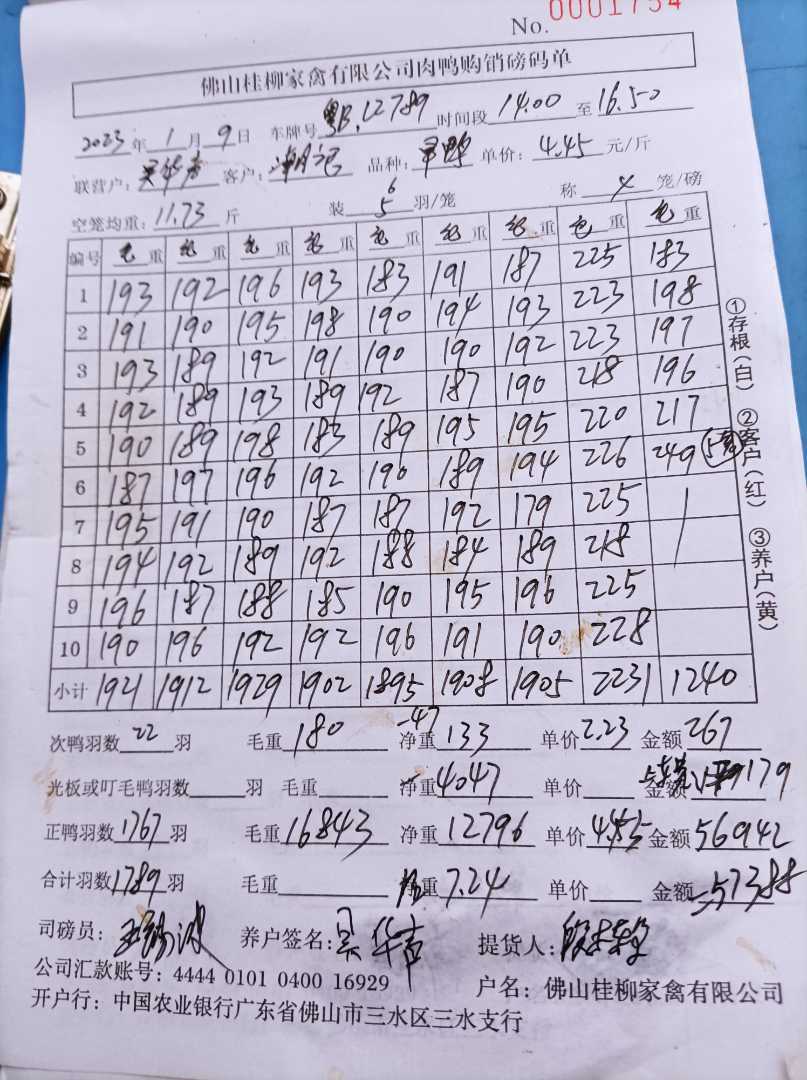 No. 0001754
佛山桂柳家禽有限公司肉鸭购销磅码单
2023年1月9日 车牌号 粤B.12789 时间段 14.00 至 16.50
联营户: 吴华声 客户: 品种: 单价: 4.45 元/斤
空笼均重: 11.73 斤 装 6 5 羽/笼 称 4 笼/磅
编号 毛重 毛重 毛重 毛重 毛重 毛重 毛重 毛重 毛重
1 193 192 196 193 183 191 187 225 183
2 191 190 195 198 190 194 193 223 198
3 193 189 192 191 190 190 192 223 197
4 192 189 193 189 192 187 190 218 196
5 190 189 198 183 189 195 195 220 217
6 187 197 196 192 190 189 194 226 249
7 195 191 190 187 187 192 179 225
8 194 192 189 192 188 184 189 218
9 196 187 188 185 190 195 196 225
10 190 196 192 192 196 191 190 228
小计 1921 1912 1929 1902 1895 1908 1905 2231 1240
①存根(白) ②客户(红) ③养户(黄)
次鸭羽数 22 羽 毛重 180 -47 净重 133 单价 2.23 金额 267
光板或叮毛鸭羽数 羽 毛重 净重 4047 单价 金额 179
正鸭羽数 1767 羽 毛重 16843 净重 12796 单价 4.45 金额 56942
合计羽数 1789 羽 毛重 净重 7.24 单价 金额 =57388
司磅员: 养户签名: 吴华声 提货人:
公司汇款账号: 4444 0101 0400 16929 户名: 佛山桂柳家禽有限公司
开户行: 中国农业银行广东省佛山市三水区三水支行